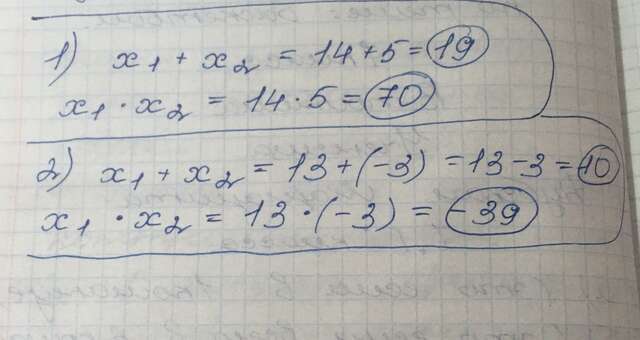 1) x₁ + x₂ = 14 + 5 = 19
x₁ · x₂ = 14 · 5 = 70
2) x₁ + x₂ = 13 + (-3) = 13 - 3 = 10
x₁ · x₂ = 13 · (-3) = -39